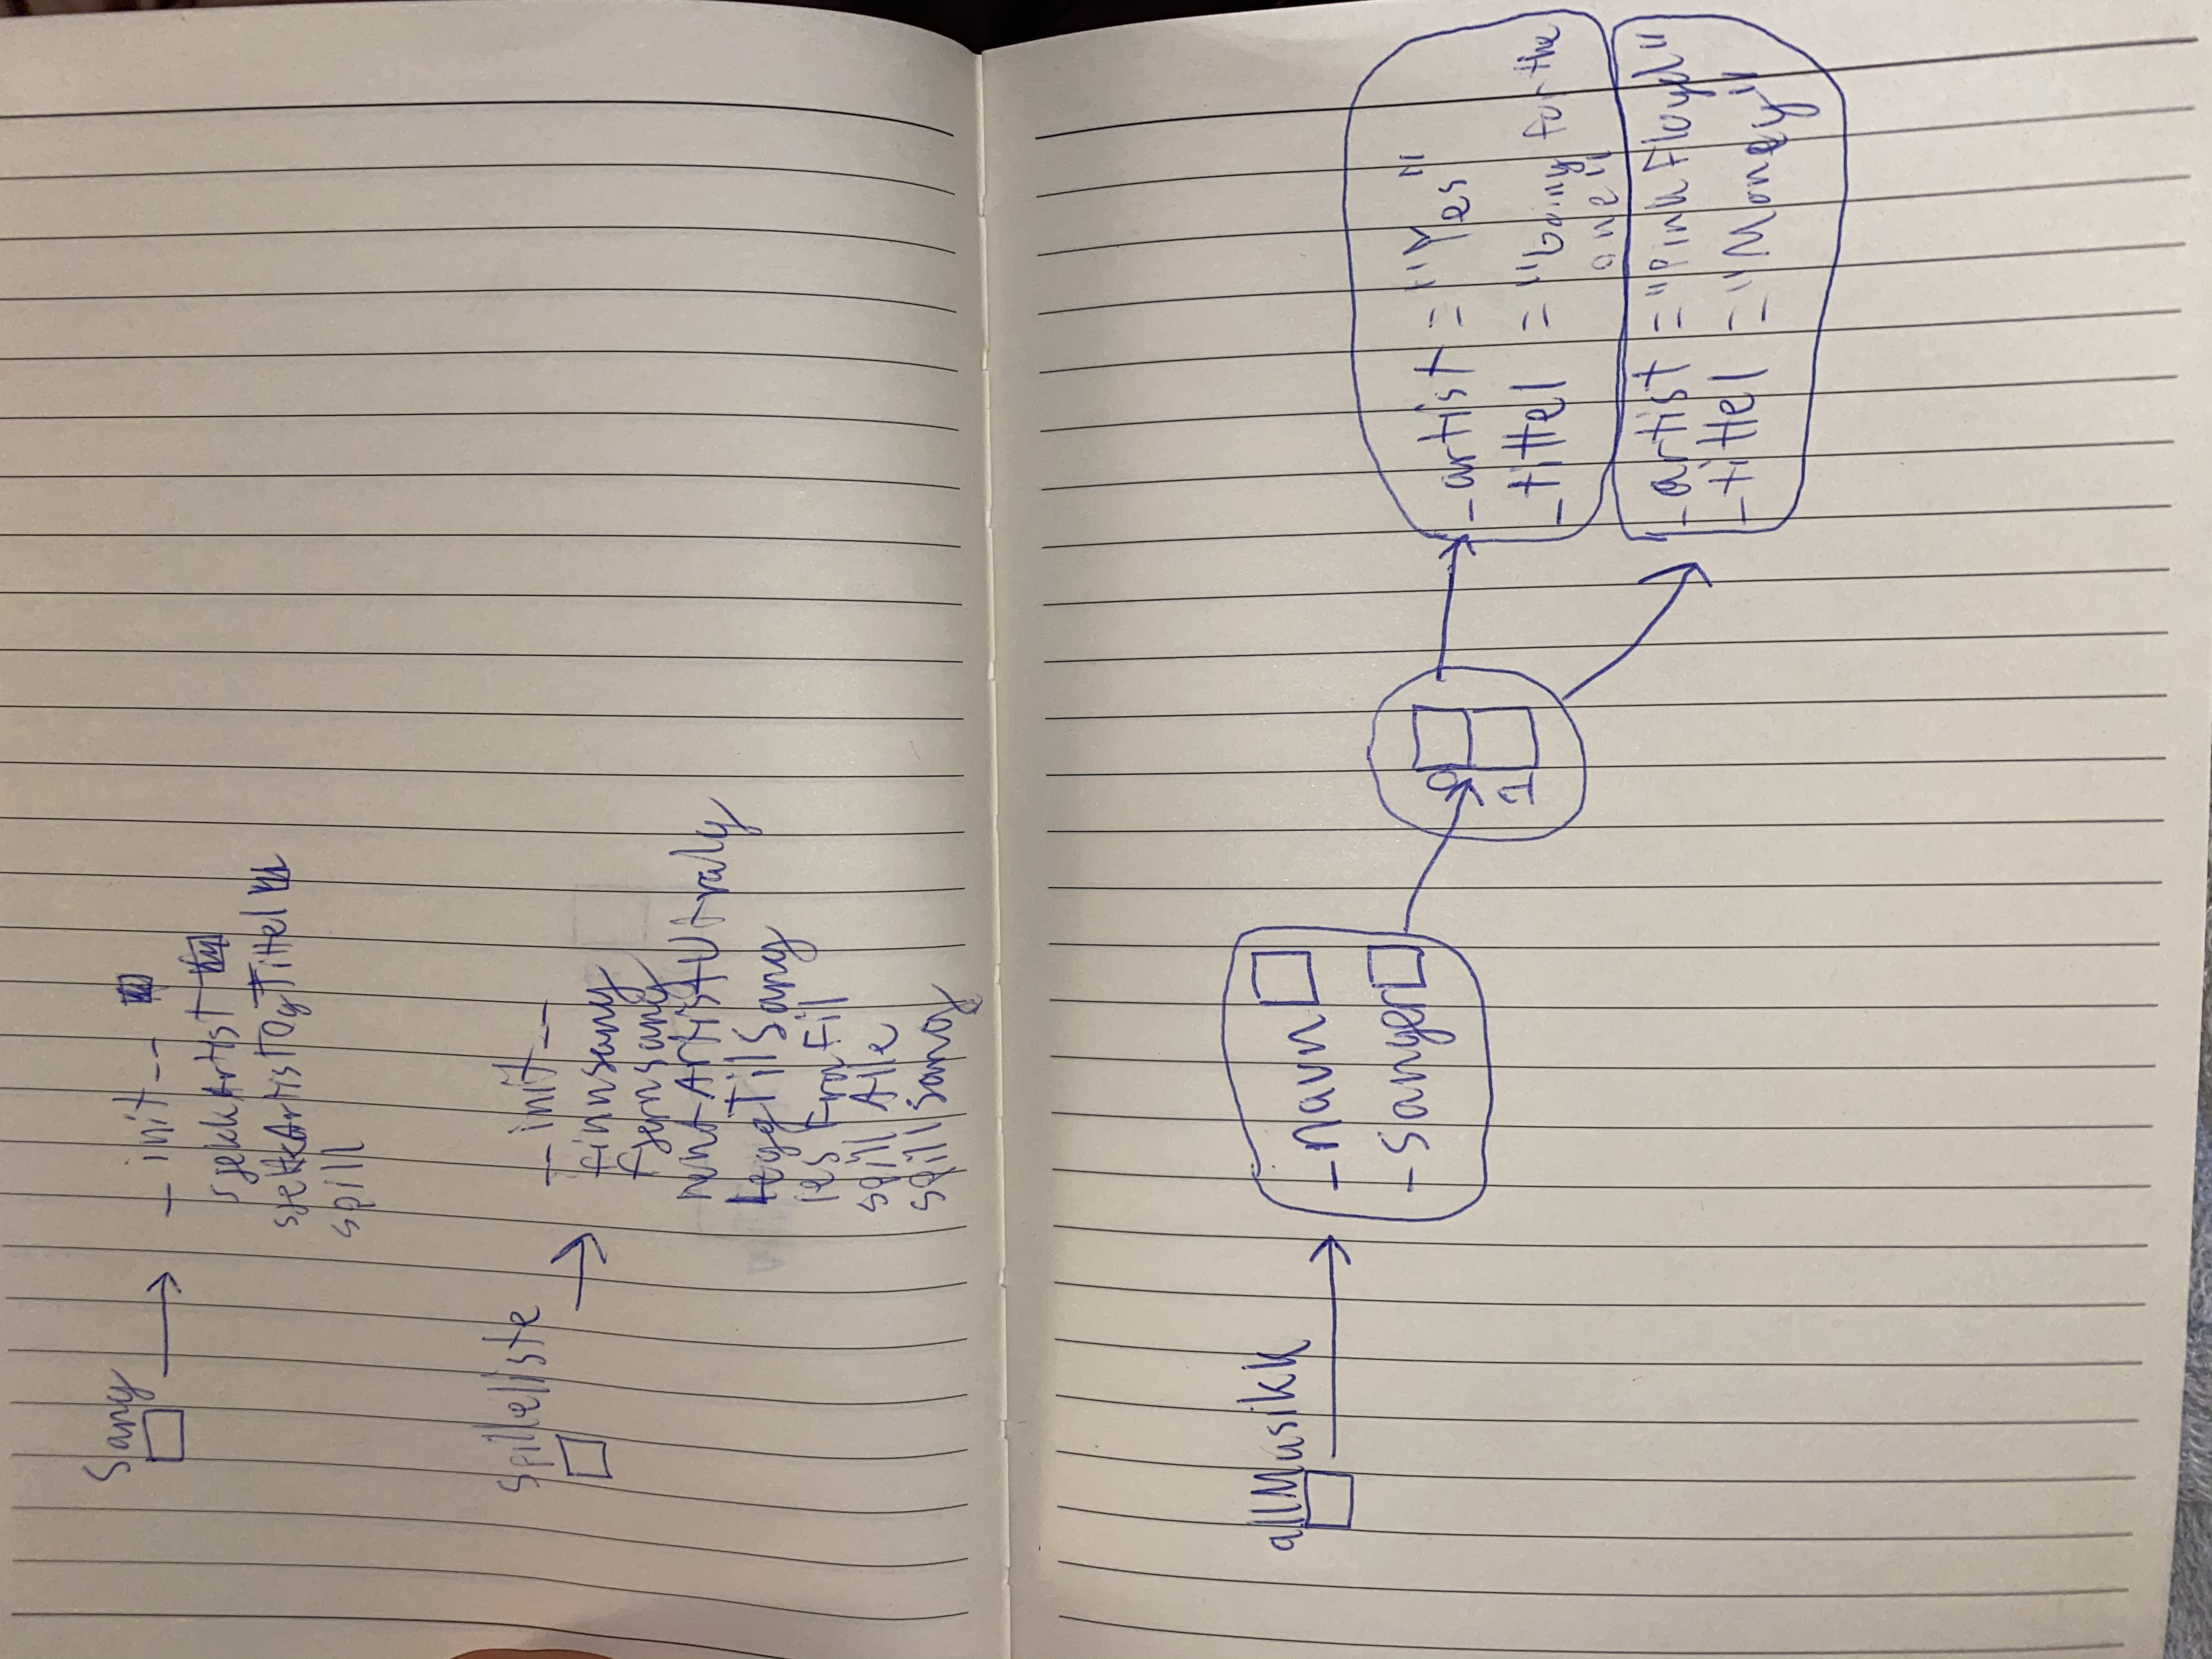 Sang
_ init__
sjekkArtist
sjekkArtistOgTittel
spill
Spilleliste
__init__
finnsang
fjernsang
hentArtistUtvalg
LeggTilSang
les Fra Fil
spill Alle
spill Sang
allMusikk
_navn
_sanger
0
1
_artist = "Yes"
_tittel = "Going for the
one"
_artist = "Pink Floyd"
_tittel = "Money"